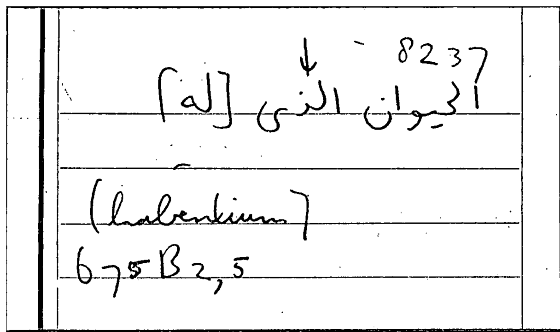 8237
الحيوان الذى [له]
(habentium)
675B2,5